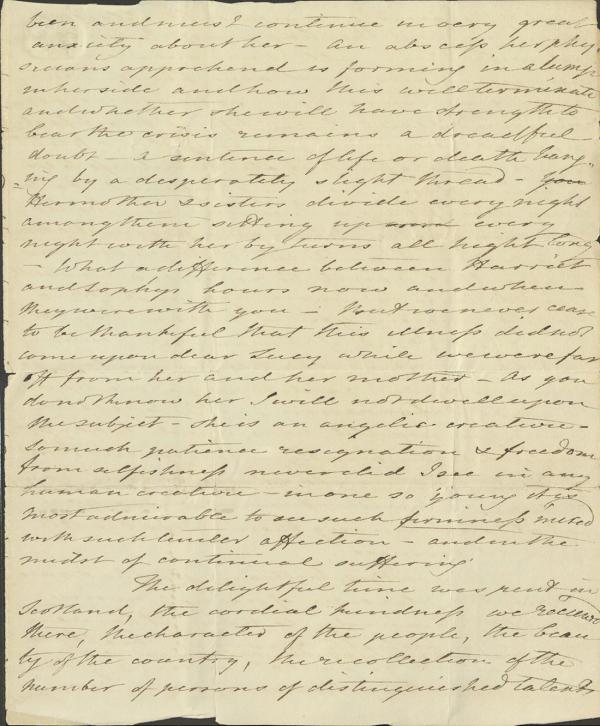 been and must continue in very great
anxiety about her – An abscess her phy
sicians apprehend is forming in a lump
in her side and how this will terminate
and whether she will have strength to
bear the crisis remains a dreadful
doubt – a sentence of life or death hang-
ing by a desperately slight thread –
Her mother & sisters divide every night
among them sitting up every
night with her by turns all night long
– What a difference between Harriet
and Sophys hours now and when
they were with you – But we never cease
to be thankful that this illness did not
come upon dear Lucy while we were far
off from her and her mother – As you
do not know her I will not dwell upon
the subject – she is an angelic creature –
so much patience resignation & freedom
from selfishness never did I see in any
human creature – in one so young it is
most admirable to see such firmness mixed
with such tender affection – and in the
midst of continual suffering
The delightful time was spent in
Scotland, the cordial kindness we received
there, the character of the people, the beau
ty of the country, the recollection of the
number of persons of distinguished talents